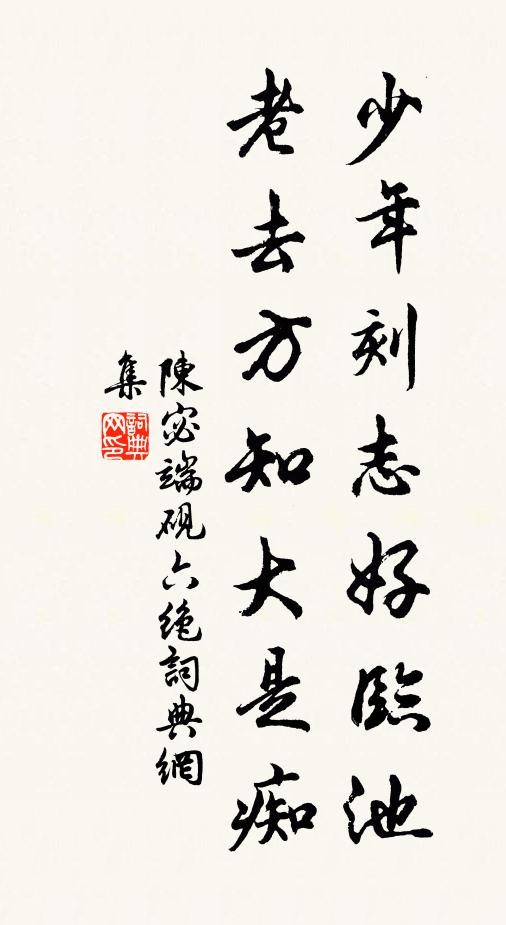 少年刻志好臨池
老去方知大是痴
陳宓端硯六絶詞典網
集
詞典网印